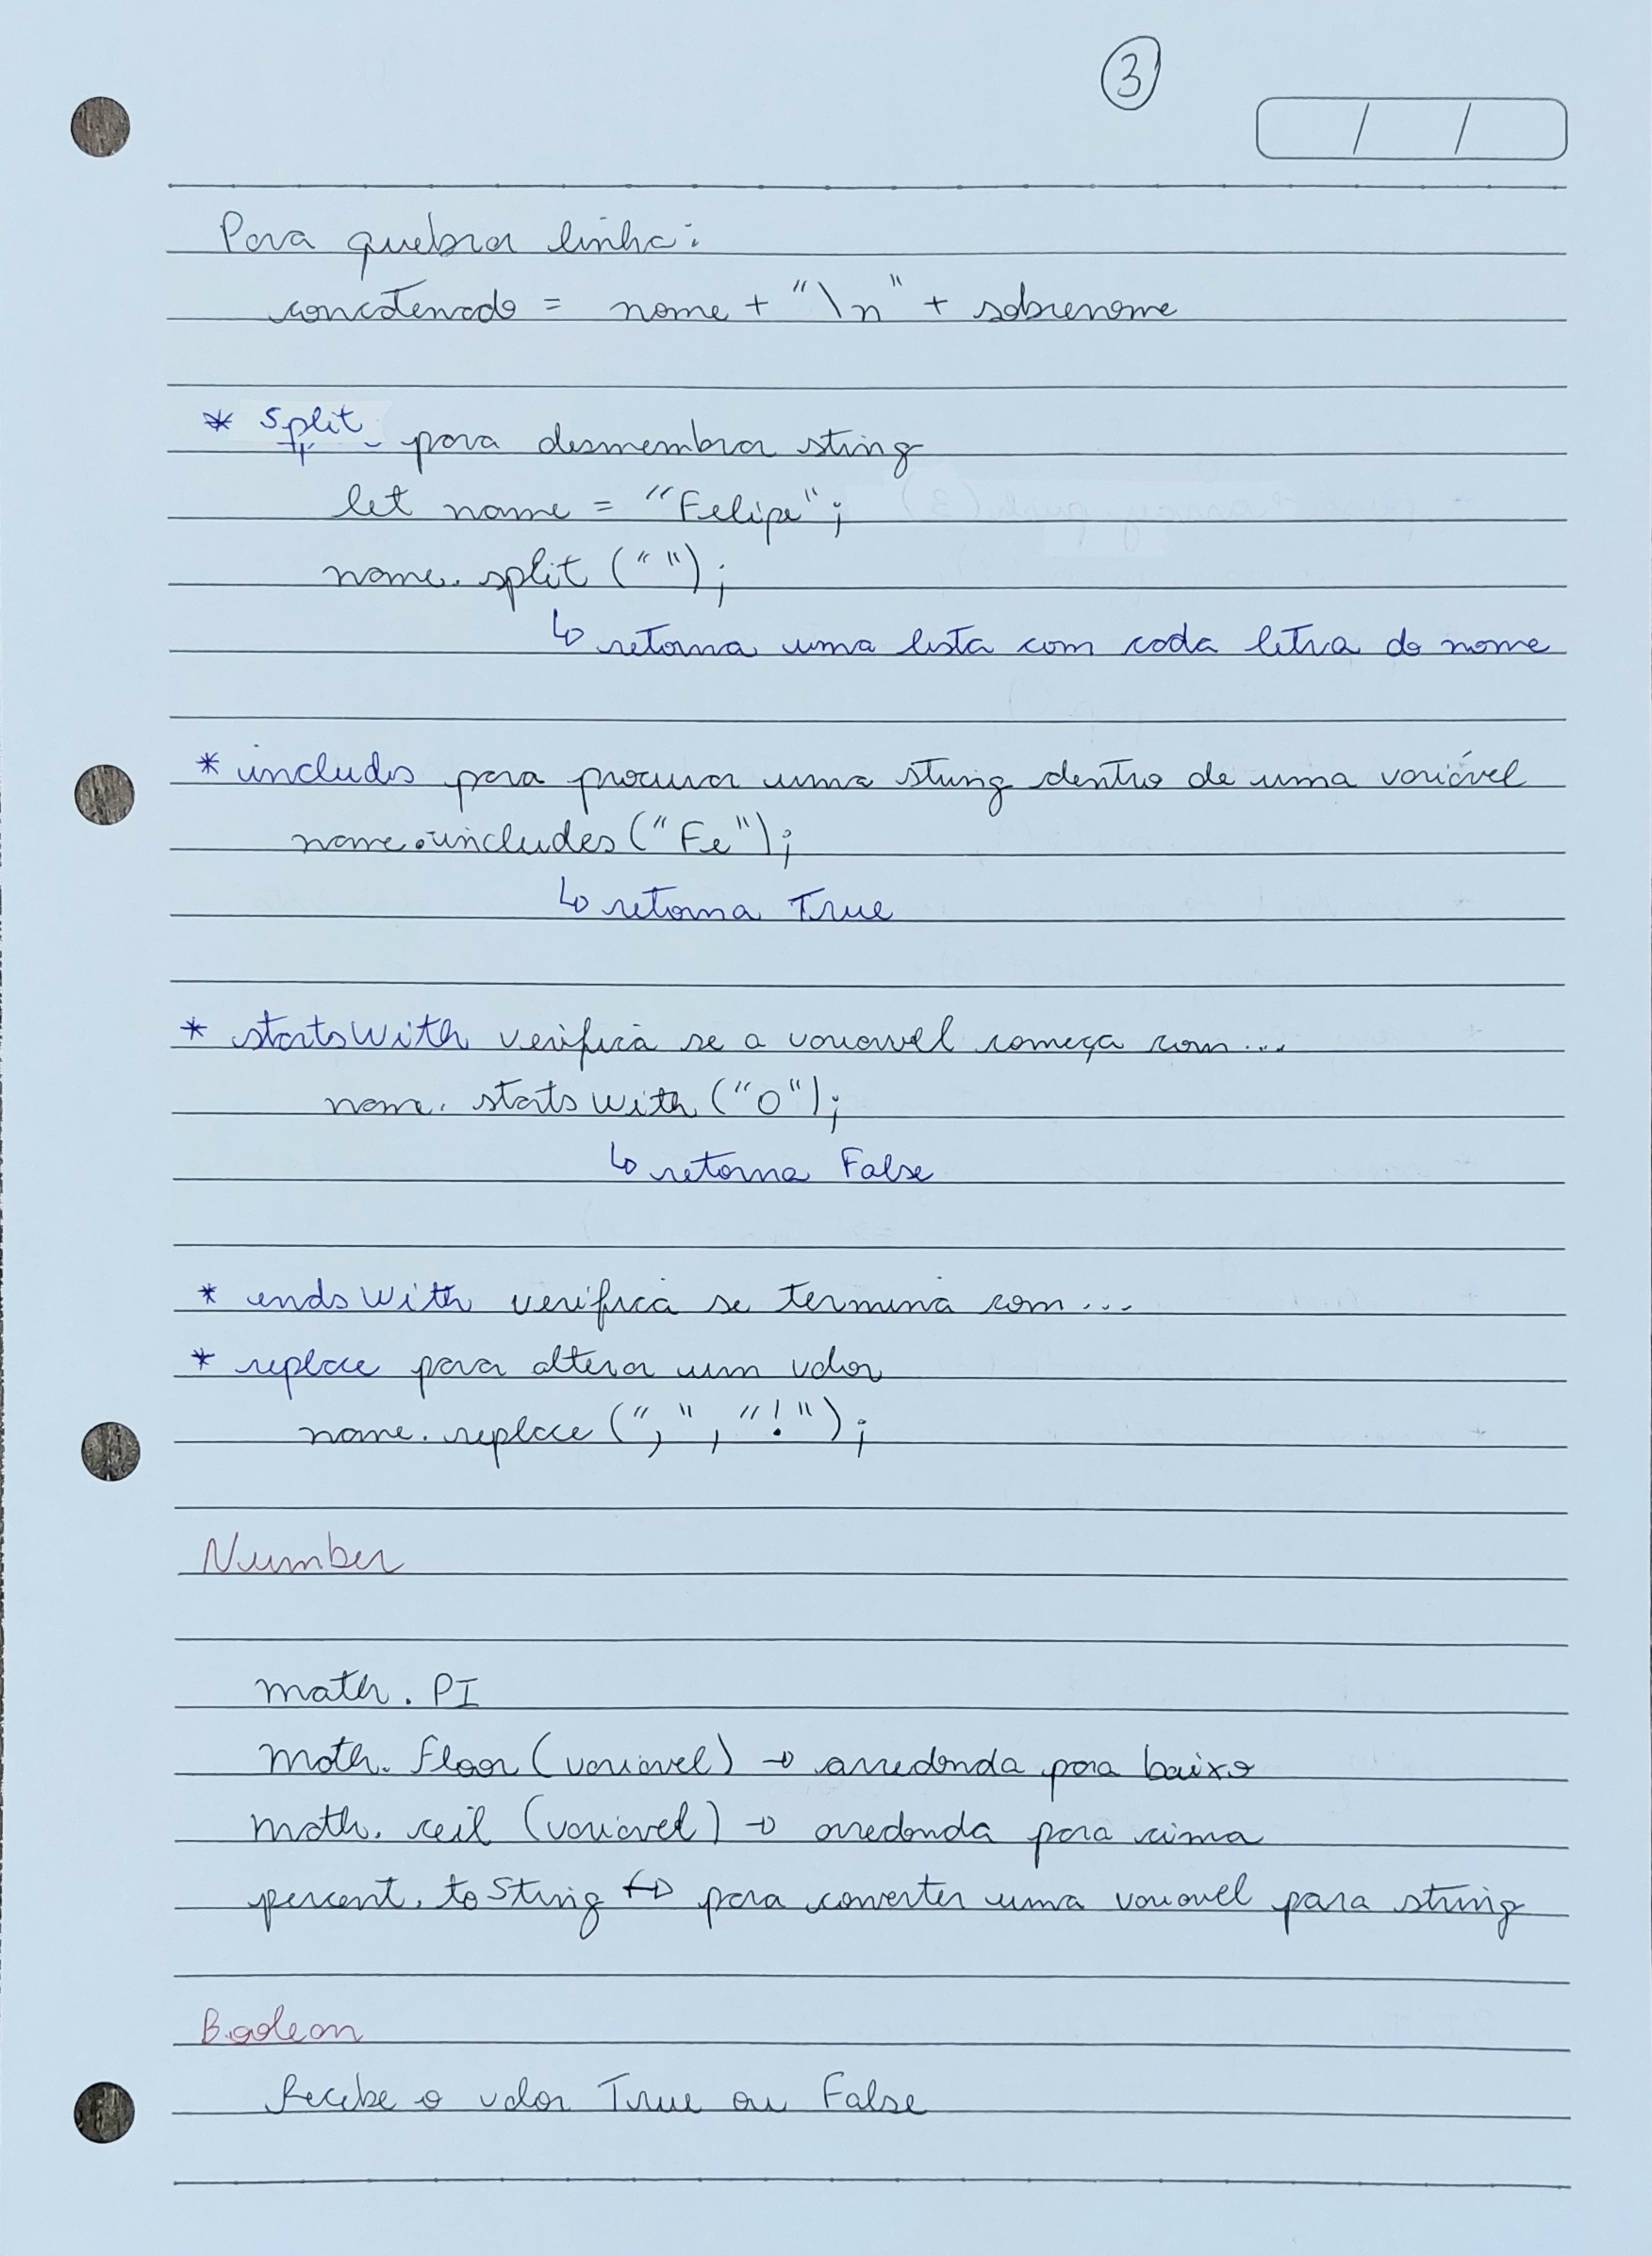 3
/ /
Para quebrar linha:
concatenado = nome + "\n" + sobrenome
* split para desmembrar sting
let nome = "Felipe";
nome.split (" ");
↳ retorna uma lista com cada letra do nome
* includes para procurar uma string dentro de uma variável
nome.includes ("Fe");
↳ retorna True
* startsWith verifica se a variavel começa com...
nome.startsWith ("O");
↳ retorna False
* endsWith verifica se termina com...
* replace para alterar um valor
nome.replace (",", "!");
Number
math.PI
math.floor (variavel) → arredonda para baixo
math.ceil (variavel) → arredonda para cima
percent.toString ↔ para converter uma variavel para string
Boolean
Recebe o valor True ou False